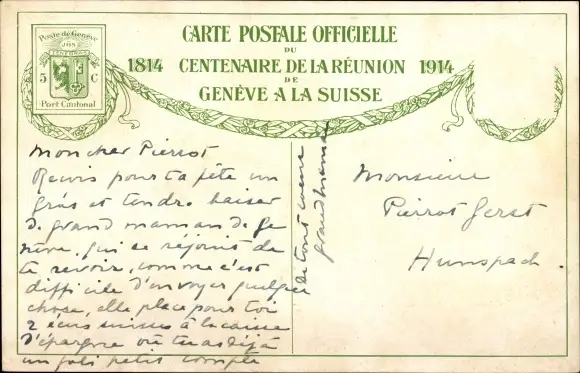 Poste de Genève
JHS
5 C
Port Cantonal
CARTE POSTALE OFFICIELLE
DU
1814 CENTENAIRE DE LA RÉUNION 1914
DE
GENÈVE A LA SUISSE
Mon cher Pierrot
Reçois pour ta fête un
gros et tendre baiser
de grand maman de Ge
nève, qui se réjouit de
te revoir, comme c'est
difficile d'envoyer quelque
chose, elle place pour toi
2 écus suisses à la caisse
d'épargne où tu as déjà
un joli petit compte
de tout coeur
grand maman
Monsieur
Pierrot Gerst
Hunspach